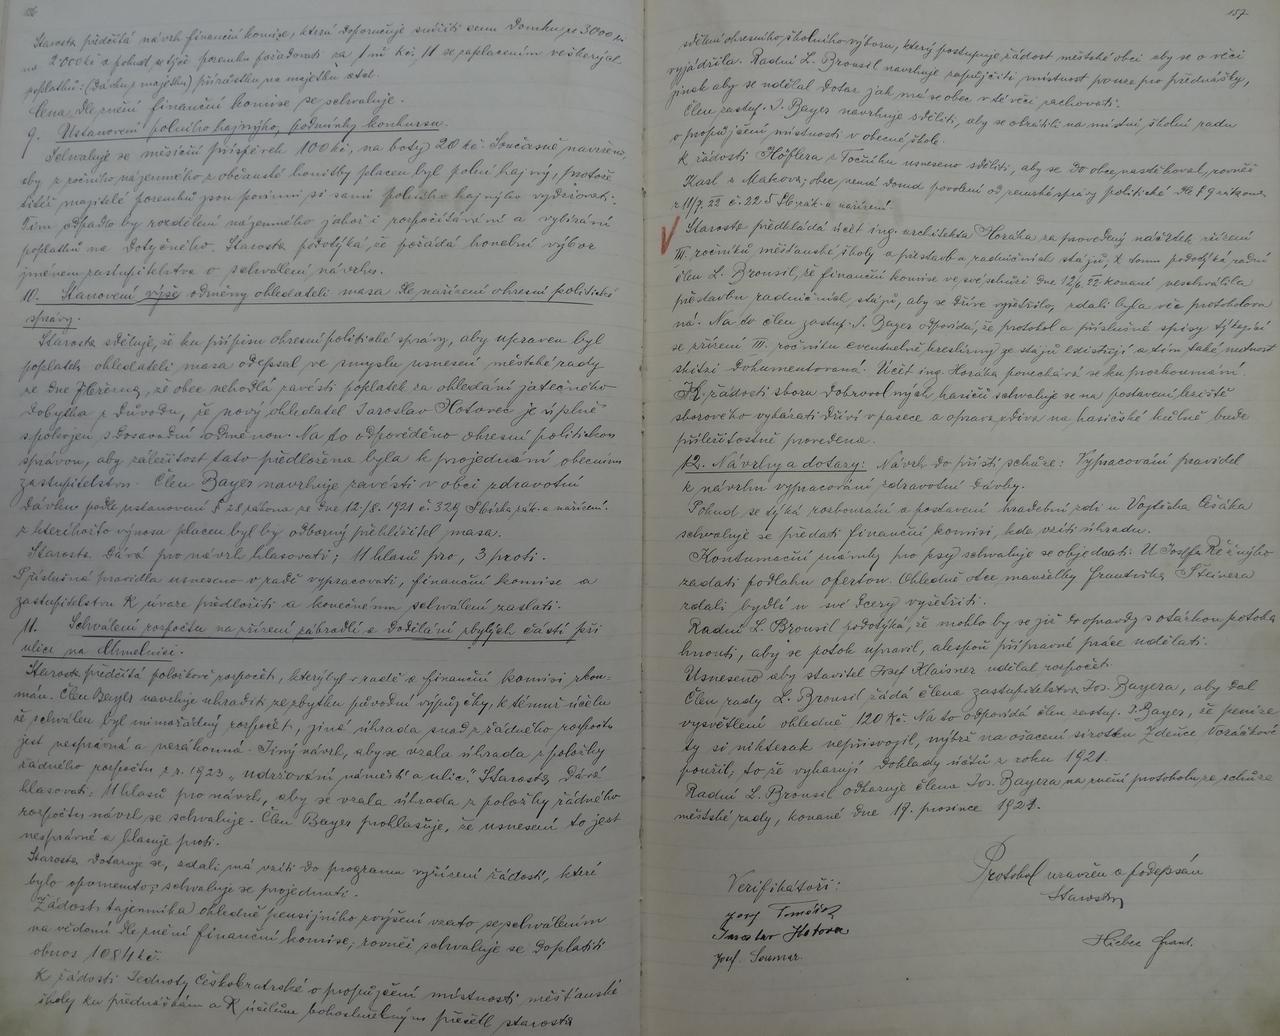 Starosta předčítá návrh finanční komise, která doporučuje snížiti cenu domku ze 3000 kč
na 2000 kč a pokud se týče pozemku požadovati za 1 m² kč, 11 se zaplacením veškerých
poplatků: (dávky z majetku) přirážky na majetku atd.
Cena dle znění finanční komise se schvaluje.
9. Ustanovení polního hajného, podmínky konkursu.
Schvaluje se měsíční příspěvek 100 kč, na boty 20 kč. Současně navrženo,
aby z ročního nájemného z občanské honitby placen byl polní hajný, protože
titíž majitelé pozemků jsou povinni si sami polního hajného vydržovati.
Tím odpadlo by rozdělení nájemného jakož i rozpočítávání a vybírání
poplatků na dotyčného. Starosta podotýká, že požádá honební výbor
jménem zastupitelstva o schválení návrhu.
10. Stanovení výše odměny ohledateli masa dle nařízení okresní politické
správy.
Starosta sděluje, že ku přípisu okresní politické správy, aby upraven byl
poplatek ohledateli masa odepsal ve smyslu usnesení městské rady
ze dne 7. března, že obec nehodlá zavésti poplatek za ohledání jatečného
dobytka z důvodu, že nový ohledatel Jaroslav Hotovec je úplně
spokojen s dosavadní odměnou. Na to odpověděno okresní politickou
správou, aby záležitost tato předložena byla k projednání obecnímu
zastupitelstvu. Člen Bayer navrhuje zavésti v obci zdravotní
dávku podle ustanovení § 28 zákona ze dne 12./8. 1921 č. 329 Sbírka zák. a nařízení
z kteréhožto výnosu placen byl by odborný prohlížitel masa.
Starosta dává pro návrh hlasovati; 11 hlasů pro, 3 proti.
Příslušná pravidla usneseno v radě vypracovati, finanční komise a
zastupitelstvu k úvaze předložiti a konečnému schválení zaslati.
11. Schválení rozpočtu na zřízení zábradlí a dodělání zbylých částí při
ulici na Chmelnici.
Starosta předčítá položkové rozpočty, který byl v radě a finanční komisi zkou-
mán. Člen Bayer navrhuje uhraditi ze zbytku původní výpůjčky, k témuž účelu
že schválen byl mimořádný rozpočet, jiná úhrada snad z řádného rozpočtu
jest nesprávná a nezákonná. Jiný návrh, aby se vzala úhrada z položky
řádného rozpočtu z r. 1923 „udržování náměstí a ulic“. Starosta dává
hlasovati: 11 hlasů pro návrh, aby se vzala úhrada z položky řádného
rozpočtu návrh se schvaluje. Člen Bayer prohlašuje, že usnesení to jest
nesprávné a hlasuje proti.
Starosta dotazuje se, zdali má vzíti do programu vyřízení žádostí, které
bylo opomenuto; schvaluje se projednati.
Žádosti tajemníka ohledně pensijního zvýšení vzato se schválením
na vědomí dle znění finanční komise, rovněž schvaluje se doplatiti
obnos 1084 kč.
K žádosti Jednoty Českobratrské o propůjčení místnosti měšťanské
školy ku přednáškám a k účelům bohoslužebným přečetl starosta
157
sdělení okresního školního výboru, který postupuje žádost městské obci aby se o věci
vyjádřila. Radní L. Brousil navrhuje zapůjčiti místnost pouze pro přednášky,
jinak aby se udělal dotaz jak má se obec v té věci zachovati.
Člen zastup. J. Bayer navrhuje sděliti, aby se obrátili na místní školní radu
o propůjčení místnosti v obecné škole.
K žádosti Höflera z Točníku usneseno sděliti, aby se do obce nastěhoval, rovněž
Kasl z Makova; obec nemá dosud povolení od zemské správy politické dle § 9 zákona
z 11/7. 22 č. 225 Sb. zák. a nařízení.
Starosta předkládá účet ing. architekta Horáka za provedený náčrtek zřízení
III. ročníků měšťanské školy a přístavba radničních stájů, k tomu podotýká radní
člen L. Brousil, že finanční komise ve své schůzi dne 12/6. 22 konané neschválila
přestavbu radničních stájů, aby se dříve vyšetřilo, zdali byla věc protokolová-
ná. Na to člen zastup. J. Bayer odpovídá, že protokol a příslušné spisy týkající
se zřízení III. ročníku eventuelně kreslírny ze stájů existují a tím také nutnost
skizzi dokumentována. Účet ing. Horáka ponechává se ku prozkoumání.
K žádosti sboru dobrovolných hasičů schvaluje se na postavení lezíště
sborového vykázati dříví v pasece a oprava dříva na hasičské kůlně bude
příležitostně provedena.
12. Návrhy a dotazy: Návrh do příští schůze: Vypracování pravidel
k návrhu vypracování zdravotní dávky.
Pokud se týká rozbourání a postavení hradební zdi u Vojtěcha Češáka
schvaluje se předati finanční komisi, kde vzíti úhradu.
Kontumační známky pro psy schvaluje se objednati. U Josefa Řezného
zadati podlahu ofertou. Ohledně otce manželky Františka Steinera
zdali bydlí u své dcery vyšetřiti.
Radní L. Brousil podotýká, že mohlo by se již do opravdy s otázkou potoka
hnouti, aby se potok upravil, alespoň přípravné práce udělati.
Usneseno aby stavitel Josef Klaisner udělal rozpočet.
Člen rady L. Brousil žádá člena zastupitelstva Jos. Bayera, aby dal
vysvětlení ohledně 120 Kč. Na to odpovídá člen zastup. J. Bayer, že peníze
ty si nikterak nepřisvojil, nýbrž na ošacení sirotku Zdeňce Voráčkové
použil; to že vykazují doklady účtů z roku 1921.
Radní L. Brousil odkazuje člena Jos. Bayera na znění protokolu ze schůze
městské rady, konané dne 17. prosince 1921.
Protokol uzavřen a podepsán
Starosta
Verifikátoři:
Josef Tomášek
Jaroslav Hotovec
Josef Soumar
Hieber Frant.